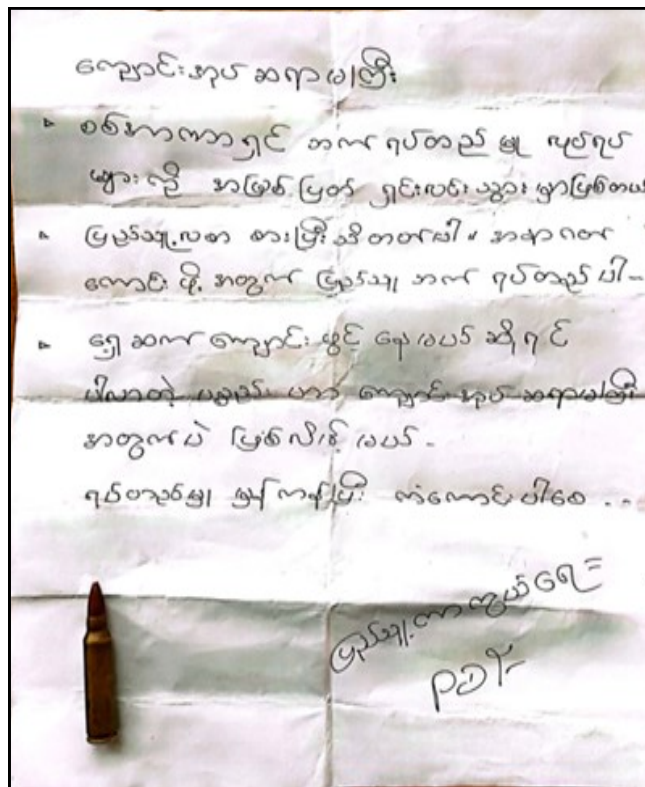 ကျောင်းအုပ် ဆရာမကြီး
စစ်အာဏာရှင် ဘက် ရပ်တည် မှု လုပ်ရပ်
များကို အမြစ်ပြတ် ရှင်းလင်း သွားမှာဖြစ်တယ်
ပြည်သူ့လစာ စားပြီးသိတတ်ပါ။ အနာဂတ်
ကောင်းဖို့ အတွက် ပြည်သူ ဘက် ရပ်တည်ပါ
ရှေ့ဆက် ကျောင်းဖွင့် နေမယ် ဆိုရင်
ပါလာတဲ့ ပစ္စည်း ဟာ ကျောင်းအုပ် ဆရာမကြီး
အတွက်ပဲ ဖြစ်လိမ့် မယ်
ရပ်တည်မှု မှန်ကန်ပြီး ကံကောင်းပါစေ . .
ပြည်သူ့ကာကွယ်ရေး